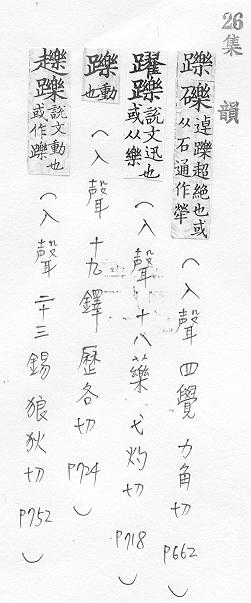 26
集韻
躒礫 逴躒超絕也或从石通作犖
（入聲 四覺 力角切 P662）
躍躒 說文迅也或从樂
（入聲 十八藥 弋灼切 P718）
躒 動也
（入聲 十九鐸 歷各切 P724）
趮躒 說文動也或作躒
（入聲 二十三錫 狼狄切 P752）